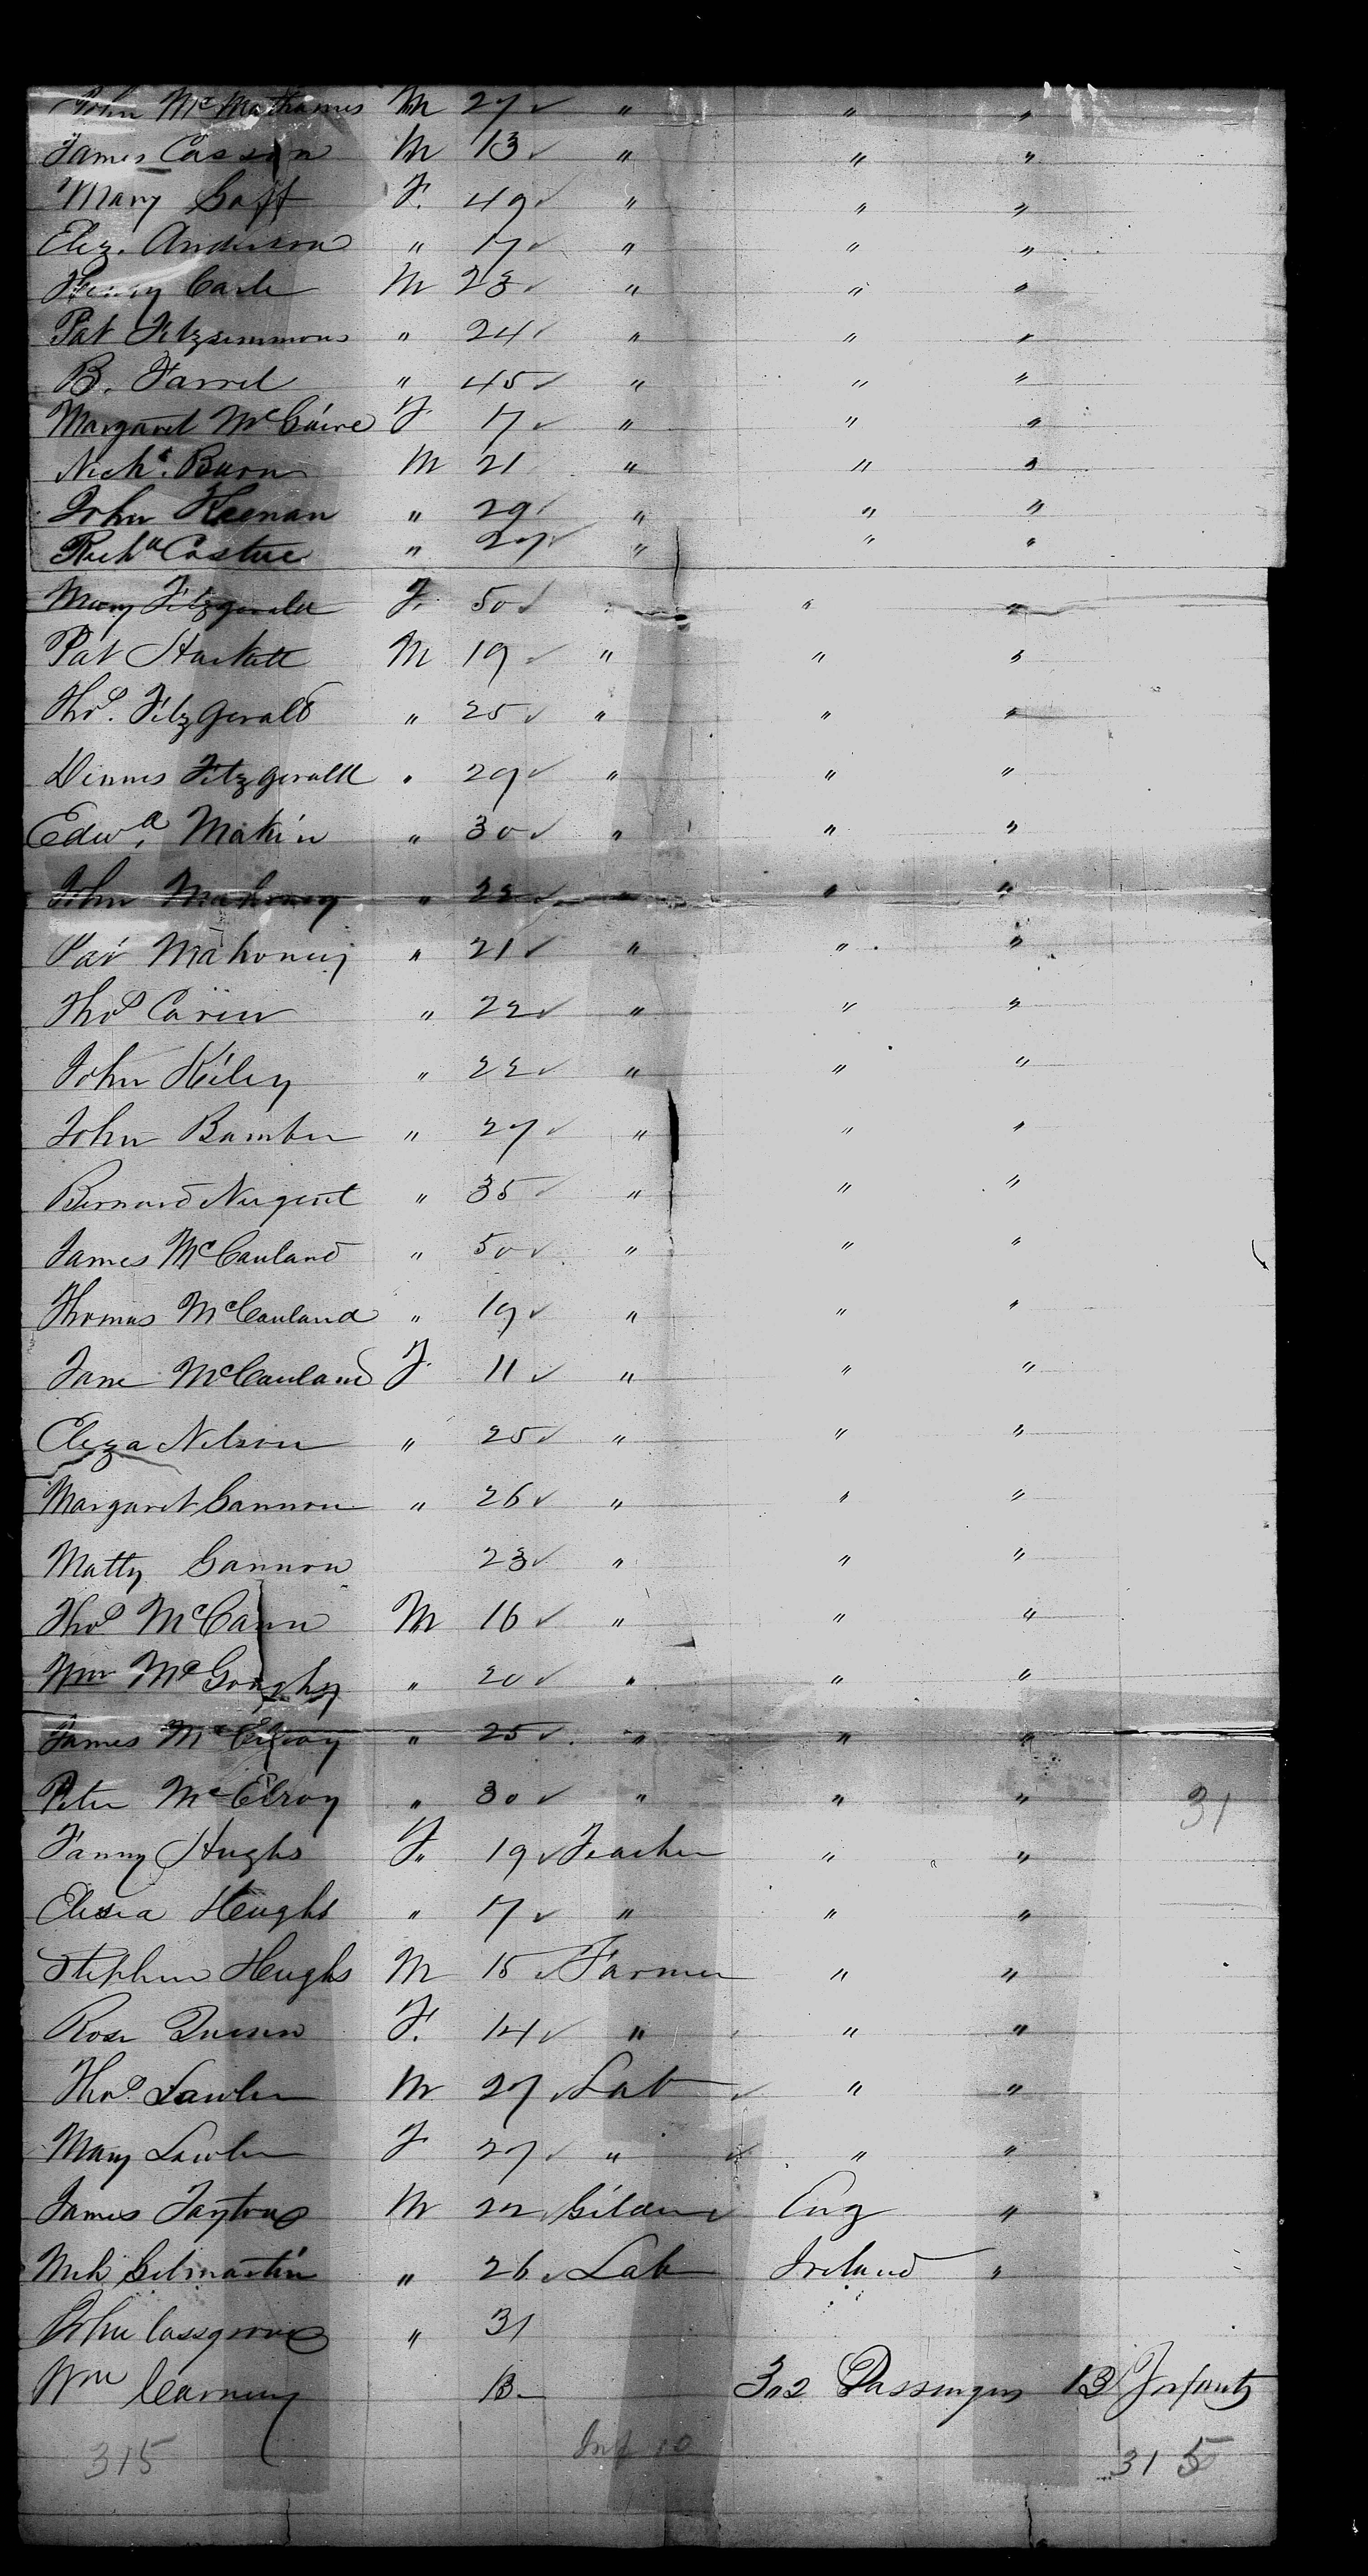 John McMathames M 27 " " "
James Casson M 13 " " "
Mary Goff F. 49 " " "
Eliz. Anderson " 17 " " "
Henry Carle M 23 " " "
Pat Fitzsimmons " 24 " " "
B. Farrel " 45 " " "
Margaret McGuire F 17 " " "
Nichs. Burn M 21 " " "
John Keenan " 29 " " "
Richd Costue " 27 " " "
Mary Fitzgerald F. 50 " " "
Pat Hackett M 19 " " "
Thos. FitzGerald " 25 " " "
Dennis Fitzgerald " 29 " " "
Edwd. Makin " 30 " " "
John Mahoney " 22 " " "
Pat Mahoney " 21 " " "
Thos Carew " 22 " " "
John Kiley " 22 " " "
John Bamber " 27 " " "
Bernard Nugent " 35 " " "
James McCauland " 50 " " "
Thomas McCauland " 19 " " "
Jane McCauland F. 11 " " "
Eliza Nelson " 25 " " "
Margaret Gannon " 26 " " "
Matty Gannon 23 " " "
Thos McCann M 16 " " "
Wm McGoughy " 20 " " "
James McElroy " 25 " " "
Peter McElroy " 30 " " " 31
Fanny Hughs F. 19 Teacher " "
Elisia Hughs " 17 " " "
Stephen Hughs M 15 Farmer " "
Rose Queen F. 14 " " "
Thos. Lawler M 27 Lab " "
Mary Lawler F 27 " " "
James Taytons M 22 Gilder Eng "
Mich Gilmartin " 26 Lab Ireland "
John Cassgrove " 31
Wm Carneny 13 302 Passengers 13 Infants
315 Inf 10 315